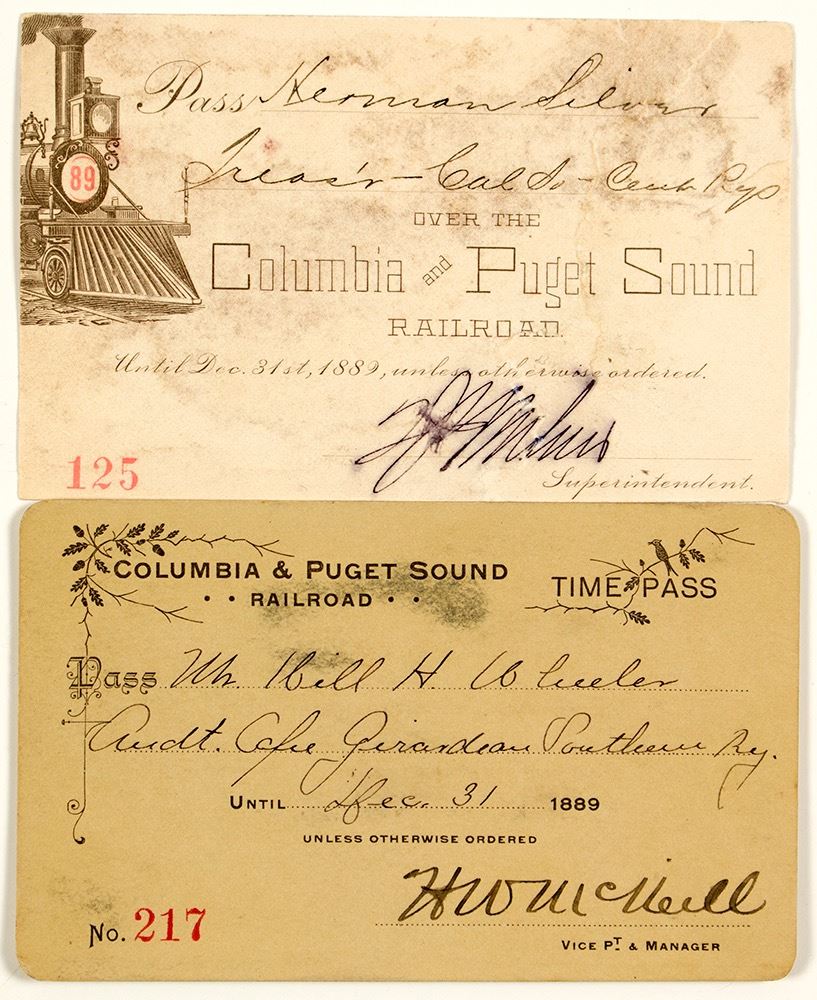 Pass Herman Silver
89
Treas'r - Cal So - Cent Rys
OVER THE
Columbia and Puget Sound
RAILROAD.
Until Dec. 31st, 1889, unless otherwise ordered.
125
Superintendent.
COLUMBIA & PUGET SOUND
RAILROAD
TIME PASS
Pass Mr Will H. Wheeler
Audt. Cape Girardeau Southern Ry.
UNTIL Dec. 31 1889
UNLESS OTHERWISE ORDERED
HW McNeill
No. 217
VICE PT & MANAGER